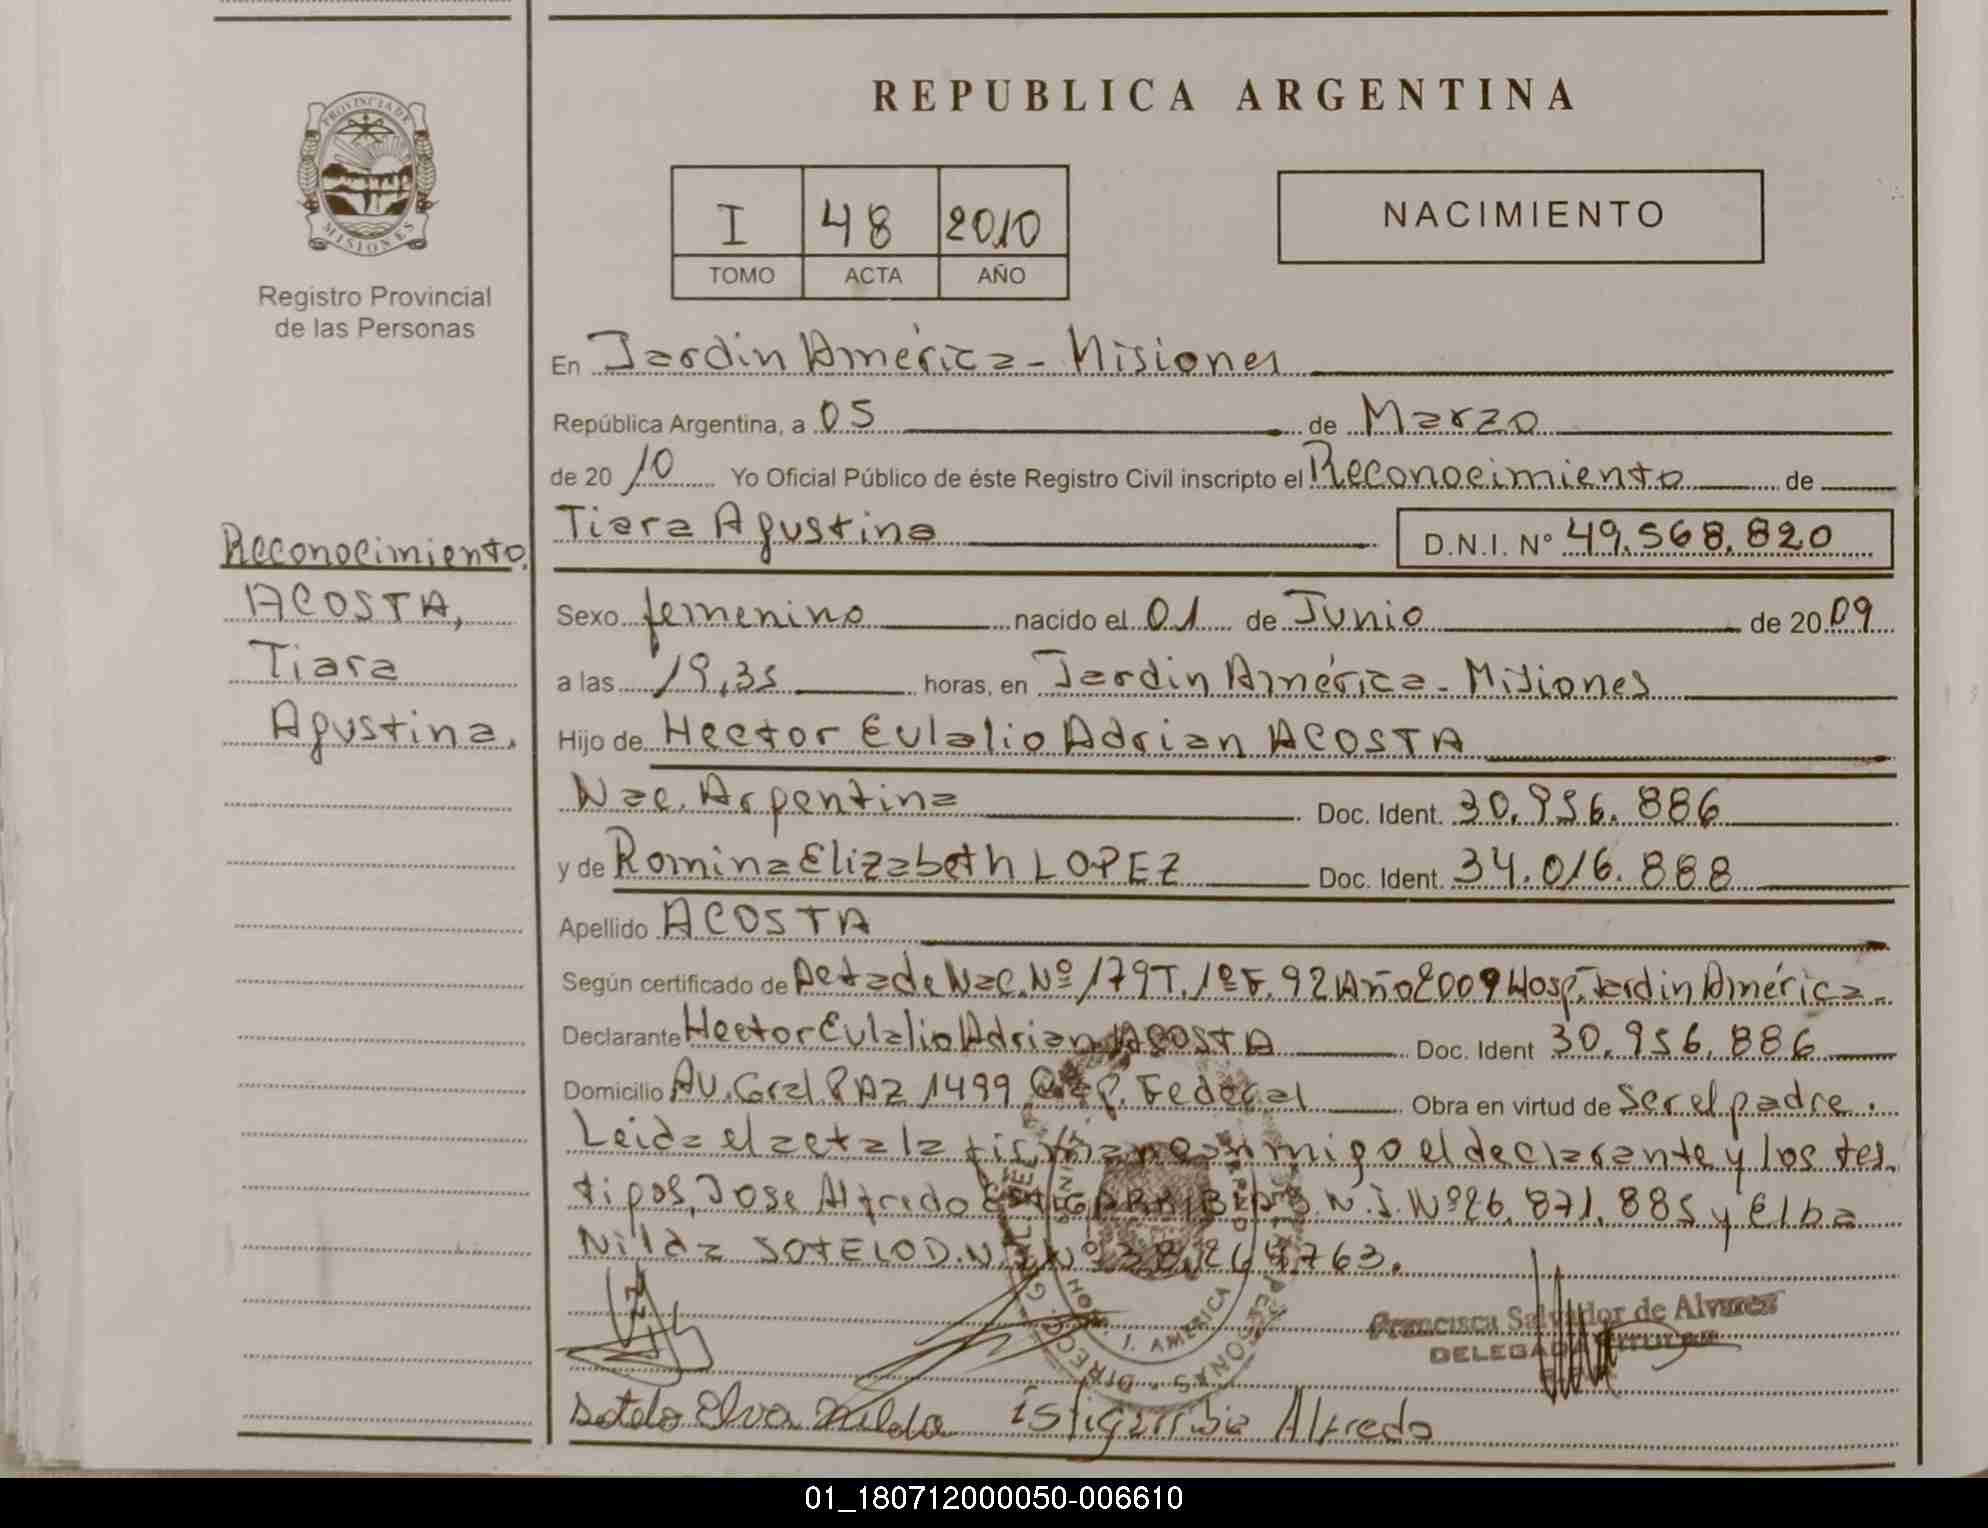 REPUBLICA ARGENTINA
PROVINCIA DE
MISIONES
Registro Provincial
de las Personas
I 48 2010
TOMO ACTA AÑO
NACIMIENTO
En Jardin América - Misiones
República Argentina, a 05 de Marzo
de 2010 Yo Oficial Público de éste Registro Civil inscripto el Reconocimiento de
Tiara Agustina D.N.I. Nº 49.568.820
Reconocimiento.
ACOSTA,
Tiara
Agustina.
Sexo femenino nacido el 01 de Junio de 2009
a las 19,35 horas, en Jardin América - Misiones
Hijo de Hector Eulalio Adrian ACOSTA
Nac. Argentina Doc. Ident. 30.956.886
y de Romina Elizabeth LOPEZ Doc. Ident. 34.016.888
Apellido ACOSTA
Según certificado de Acta de Nac. Nº 179 T. 1º F. 92 Año 2009 Hosp. Jardin América.
Declarante Hector Eulalio Adrian ACOSTA Doc. Ident 30.956.886
Domicilio Av. Gral PAZ 1499 Cap. Federal Obra en virtud de ser el padre.
Leida el acta la firman conmigo el declarante y los tes
tigos, Jose Alfredo ESTIGARRIBIA D.N.I. Nº 26.871.885 y Elba
Nilda SOTELO D.N.I. Nº
J. AMERICA
Francisca Salvador de Alvarez
DELEGADA TITULAR
Sotelo Elva Nilda Istigarribia Alfredo
01_180712000050-006610